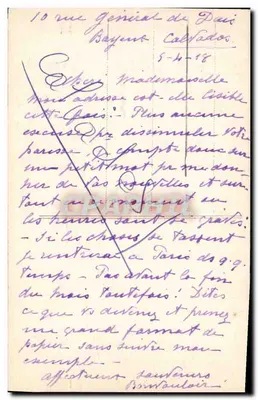 10 rue Général de Dais
Bayeux Calvados
5-4-18
Mademoiselle
mon adresse est-elle lisible
cette fois? - Plus aucune
excuse pr dissimuler votre
paresse. Je compte donc sur
un petit mot pr me donner
de vos nouvelles et surtout
les heures sont si graves.
- Si les choses se tassent
je rentrerai à Paris ds q.q.
temps - Pas avant la fin
du mois toutefois! Dites
ce que vs devenez et prenez
un grand format de
papier sans suivre mon
exemple -
affectueux souvenirs